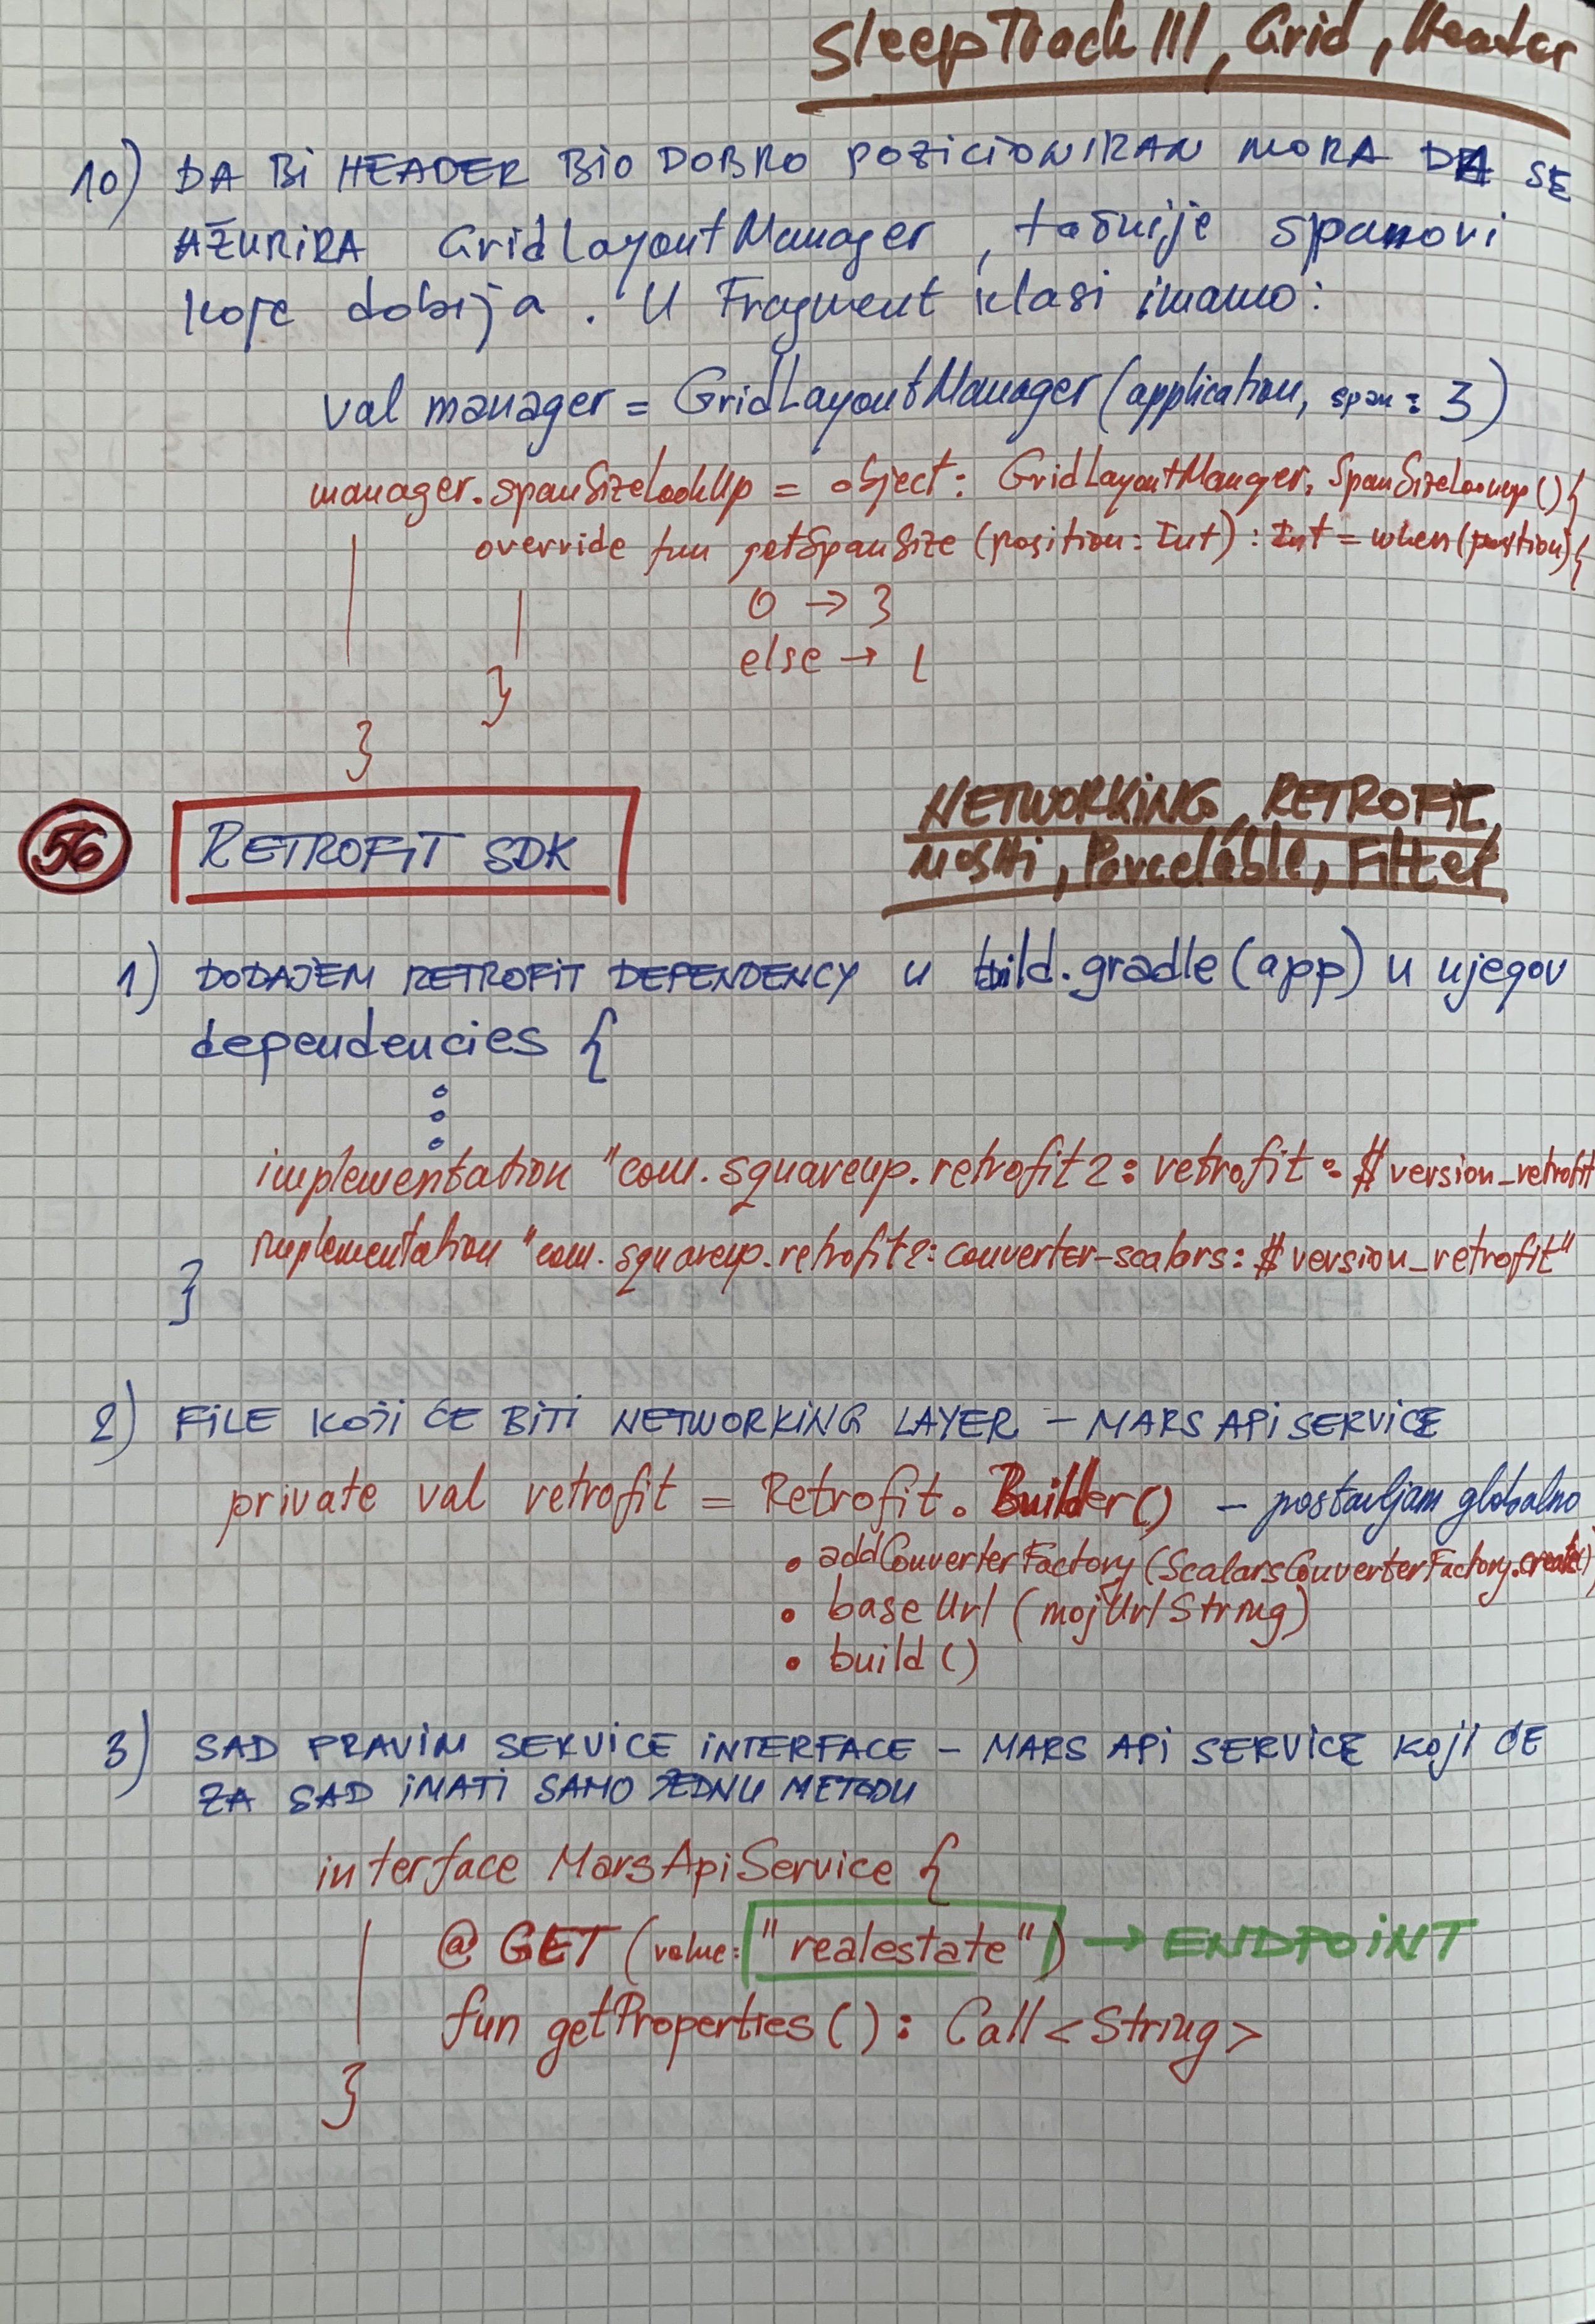 SleepTrack III, Grid, Header
10) DA BI HEADER BIO DOBRO POZICIONIRAN MORA DA SE
AŽURIRA GridLayoutManager, tačnije spanovi
koje dobija. U Fragment klasi imamo:
val manager = GridLayoutManager(application, span: 3)
manager.spanSizeLookUp = object: GridLayoutManger.SpanSizeLookup(){
override fun getSpanSize(position: Int): Int = when(position){
0 → 3
else → 1
}
}
56 RETROFIT SDK
NETWORKING, RETROFIT,
MOSHI, Parcelable, Filter
1) DODAJEM RETROFIT DEPENDENCY u build.gradle(app) u njegov
dependencies {
implementation "com.squareup.retrofit2:retrofit:$version_retrofit
implementation "com.squareup.retrofit2:converter-scalars:$version_retrofit"
}
2) FILE KOJI ĆE BITI NETWORKING LAYER - MARS API SERVICE
private val retrofit = Retrofit.Builder() - postavljam globalno
.addConverterFactory(ScalarsConverterFactory.create()
.baseUrl(mojUrlString)
.build()
3) SAD PRAVIM SERVICE INTERFACE - MARS API SERVICE KOJI ĆE
ZA SAD IMATI SAMO JEDNU METODU
interface MarsApiService {
@GET(value: "realestate") → ENDPOINT
fun getProperties(): Call<String>
}